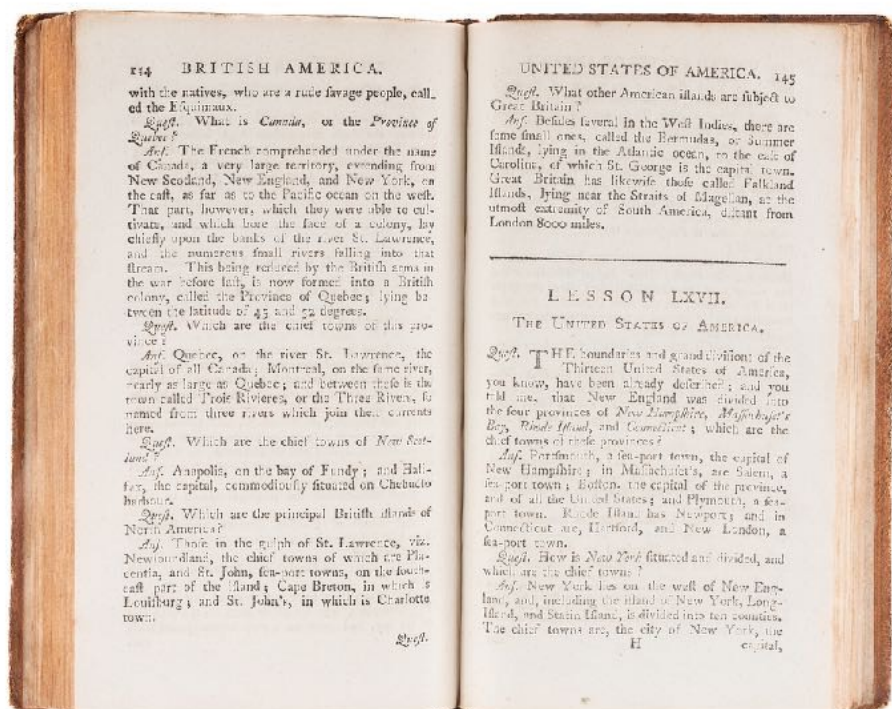 114 BRITISH AMERICA.
with the natives, who are a rude ſavage people, call-
ed the Eſquimaux.
Queſt. What is Canada, or the Province of
Quebec?
Anſ. The French comprehended under the name
of Canada, a very large territory, extending from
New Scotland, New England, and New York, on
the eaſt, as far as to the Pacific ocean on the weſt.
That part, however, which they were able to cul-
tivate, and which bore the face of a colony, lay
chiefly upon the banks of the river St. Lawrence,
and the numerous ſmall rivers falling into that
ſtream. This being reduced by the Britiſh arms in
the war before laſt, is now formed into a Britiſh
colony, called the Province of Quebec; lying be-
tween the latitude of 45 and 52 degrees.
Queſt. Which are the chief towns of this pro-
vince?
Anſ. Quebec, on the river St. Lawrence, the
capital of all Canada; Montreal, on the ſame river,
nearly as large as Quebec; and between theſe is the
town called Trois Rivieres, or the Three Rivers, ſo
named from three rivers which join their currents
here.
Queſt. Which are the chief towns of New Scot-
land?
Anſ. Anapolis, on the bay of Fundy; and Hali-
fax, the capital, commodiouſly ſituated on Chebucto
harbour.
Queſt. Which are the principal Britiſh iſlands of
North America?
Anſ. Thoſe in the gulph of St. Lawrence, viz.
Newfoundland, the chief towns of which are Pla-
centia, and St. John, ſea-port towns, on the ſouth-
eaſt part of the iſland; Cape Breton, in which is
Louiſburg; and St. John's, in which is Charlotte
town.
Queſt.
UNITED STATES OF AMERICA. 145
Queſt. What other American iſlands are ſubject to
Great Britain?
Anſ. Beſides ſeveral in the Weſt Indies, there are
ſome ſmall ones, called the Bermudas, or Summer
Iſlands, lying in the Atlantic ocean, to the eaſt of
Carolina, of which St. George is the capital town.
Great Britain has likewiſe thoſe called Falkland
Iſlands, lying near the Straits of Magellan, at the
utmoſt extremity of South America, diſtant from
London 8000 miles.
LESSON LXVII.
THE UNITED STATES OF AMERICA.
Queſt. THE boundaries and grand diviſions of the
Thirteen United States of America,
you know, have been already deſcribed; and you
told me, that New England was divided into
the four provinces of New Hampſhire, Maſſachuſet's
Bay, Rhode Iſland, and Connecticut; which are the
chief towns of theſe provinces?
Anſ. Portſmouth, a ſea-port town, the capital of
New Hampſhire; in Maſſachuſet's, are Salem, a
ſea-port town; Boſton, the capital of the province,
and of all the United States; and Plymouth, a ſea-
port town. Rhode Iſland has Newport; and in
Connecticut are, Hartford, and New London, a
ſea-port town.
Queſt. How is New York ſituated and divided, and
which are the chief towns?
Anſ. New York lies on the weſt of New Eng-
land, and, including the iſland of New York, Long-
Iſland, and Statin Iſland, is divided into ten counties.
The chief towns are, the city of New York, the
H capital,